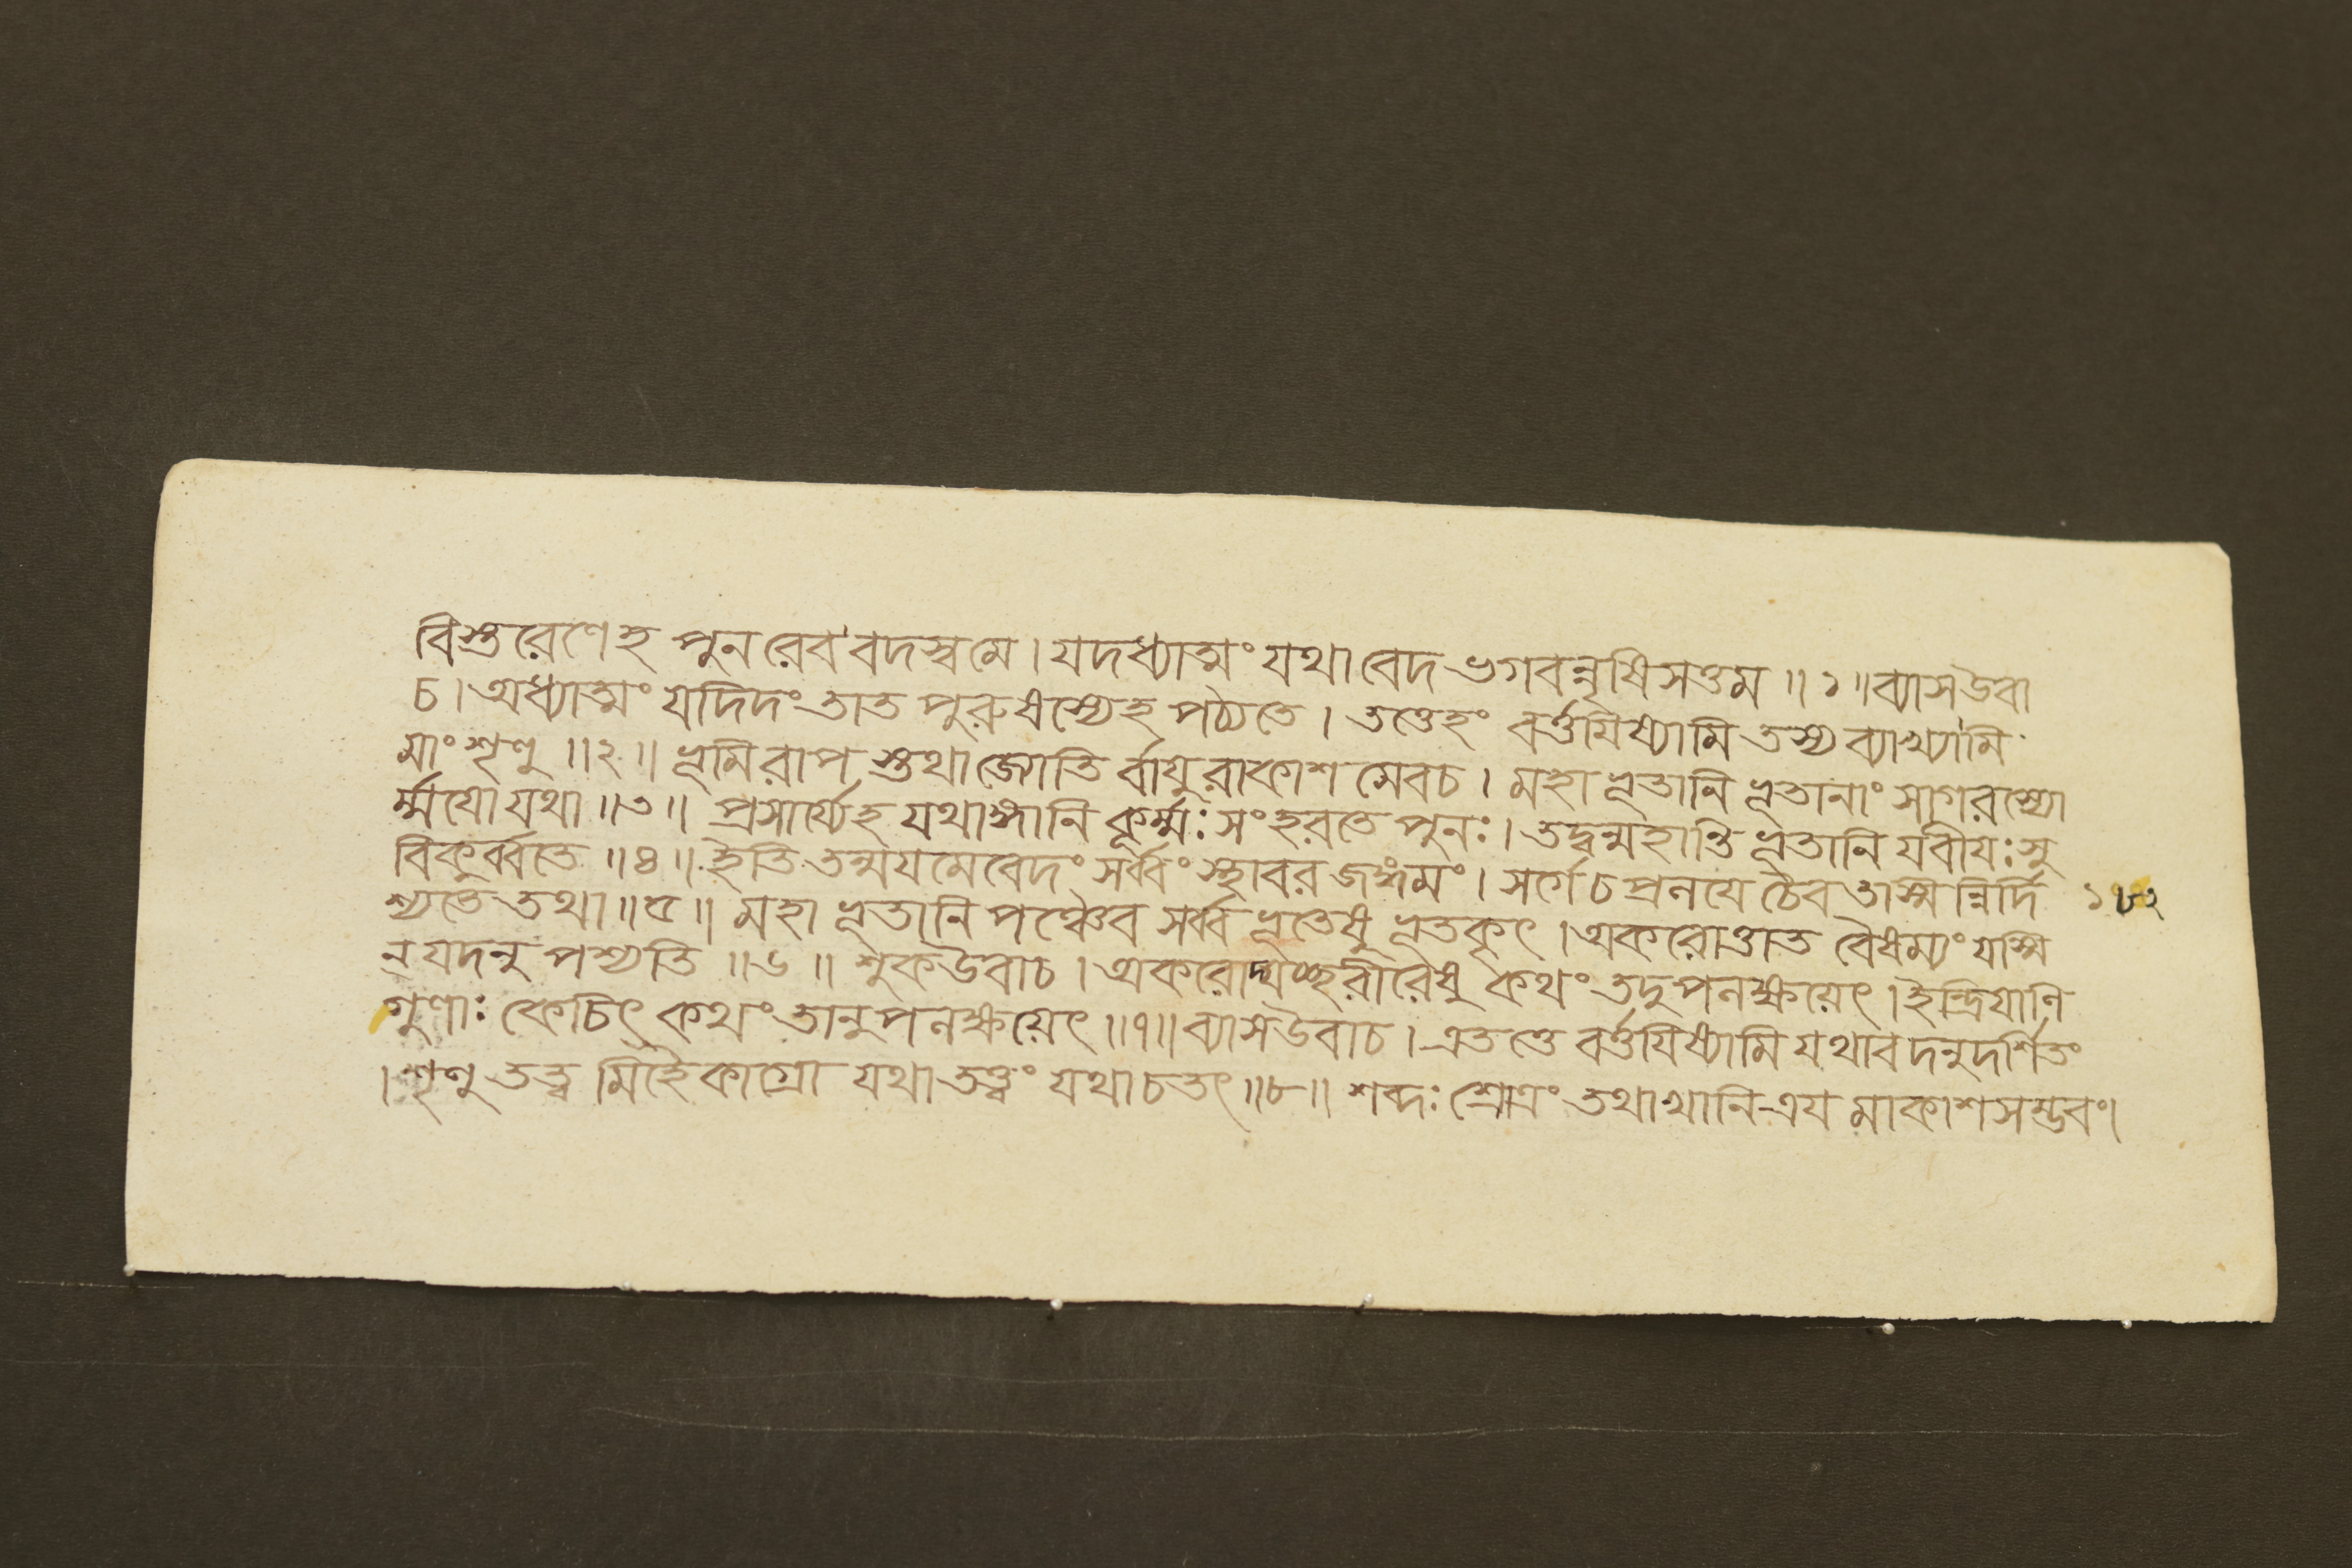 বিস্তরেণেহ পুনরেব বদস্ব মে । যদধ্যাত্মং যথা বেদ ভগবন্নৃষিসত্তম ॥ ১ ॥ ব্যাস উবা
চ । অধ্যাত্মং যদিদং তাত পুরুষস্যেহ পঠ্যতে । তত্তেহং বর্ত্তয়িষ্যামি তস্য ব্যাখ্যামি
মাং শৃণু ॥ ২ ॥ ভূমিরাপ স্তথা জ্যোতি র্বায়ুরাকাশ মেবচ । মহাভূতানি ভূতানাং সাগরস্যো
র্ম্ময়ো যথা ॥ ৩ ॥ প্রসার্য্যেহ যথাঙ্গানি কূর্ম্মঃ সংহরতে পুনঃ । তদ্বন্মহান্তি ভূতানি যবীয়ঃসু
বিকুর্ব্বতে ॥ ৪ ॥ ইতি তন্ময়মেবেদং সর্ব্বং স্থাবর জঙ্গমং । সর্গেচ প্রলয়ে চৈব তস্মিন্নির্দি
শ্যতে তথা ॥ ৫ ॥ মহাভূতানি পঞ্চৈব সর্ব্বভূতেষু ভূতকৃৎ । অকরোত্তাত বৈষম্যং যস্মি
ন্ যদনু পশ্যতি ॥ ৬ ॥ শুক উবাচ । অকরোদ্যচ্ছরীরেষু কথং তদুপলক্ষয়েৎ । ইন্দ্রিয়াণি
গুণাঃ কেচিৎ কথং তানুপলক্ষয়েৎ ॥ ৭ ॥ ব্যাস উবাচ । এতত্তে বর্ত্তয়িষ্যামি যথাবদনুদর্শিতং
। শৃণু তত্ত্ব মিহৈকাগ্রো যথাতত্ত্বং যথা চ তৎ ॥ ৮ ॥ শব্দঃ শ্রোত্রং তথা খানি ত্রয় মাকাশসম্ভবং ।
১৮২